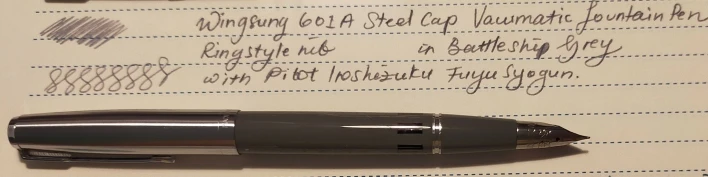 Wingsung 601A Steel Cap Vacumatic Fountain Pen
Ringstyle nib in Battleship Grey
with Pilot Iroshizuku Fuyu Syogun.